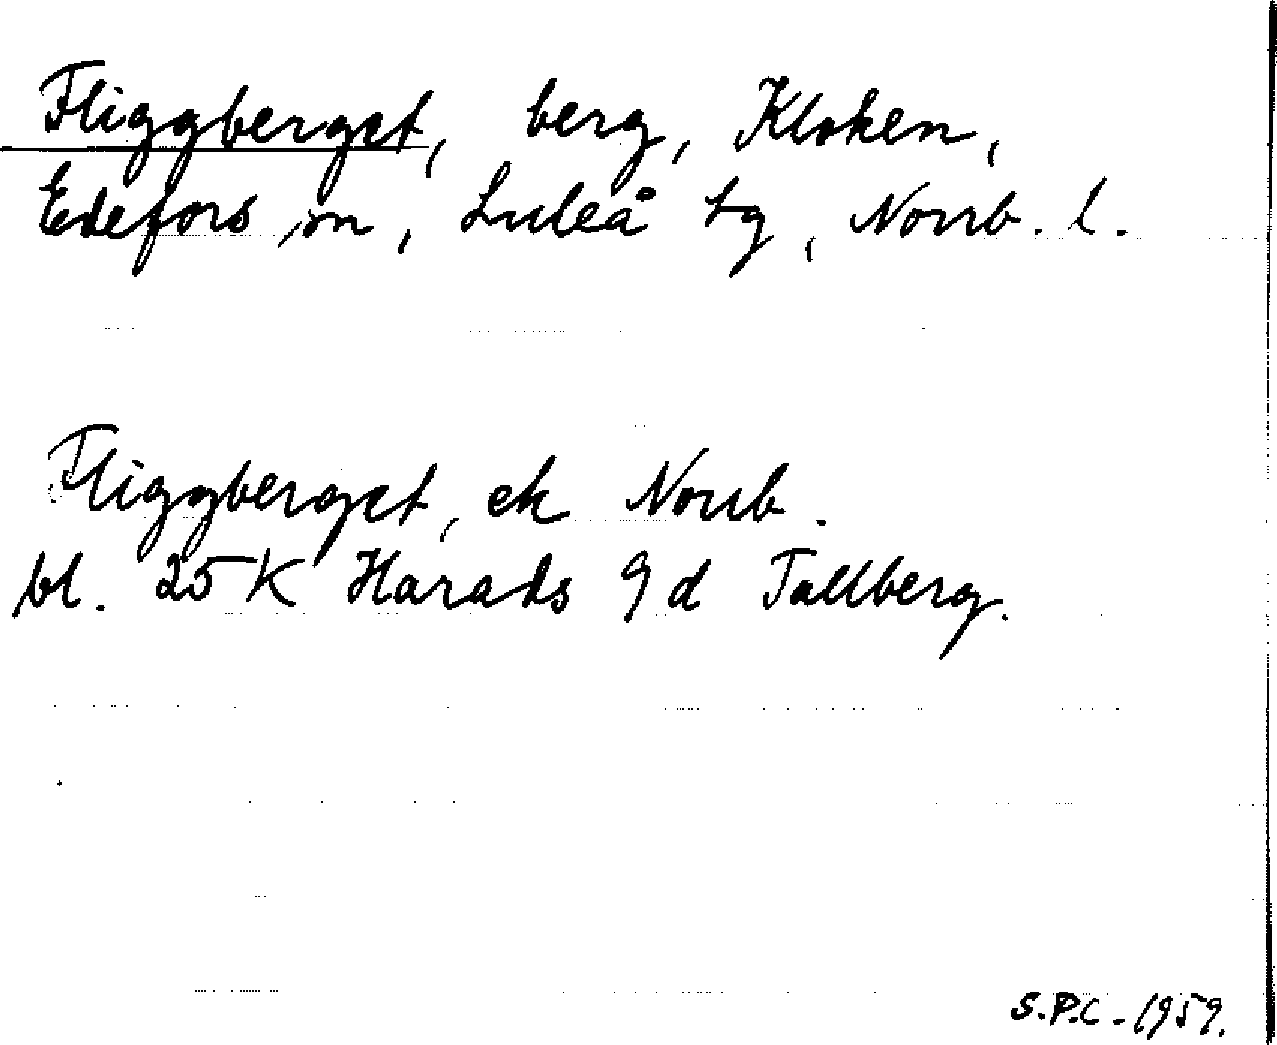 Fliggberget, berg, Kloken,
Edefors sn, Luleå tg, Norrb. l.
Fliggberget, ek Norrb.
bl. 25 K Harads 9 d Tallberg.
S.P.C. - 1959.